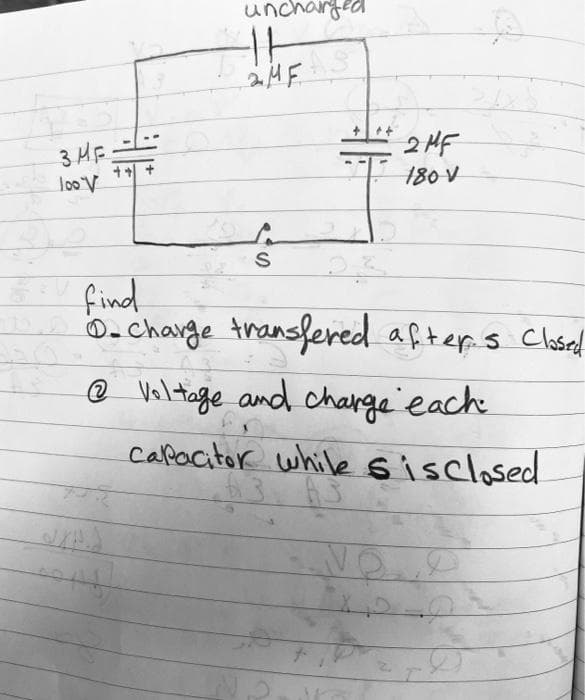 uncharged
2 μF
- - -
+ + +
3 μF
100 V
+ + +
- - -
2 μF
180 V
S
find
①- charge transfered after s Closed
② Voltage and charge each
capacitor while s is closed